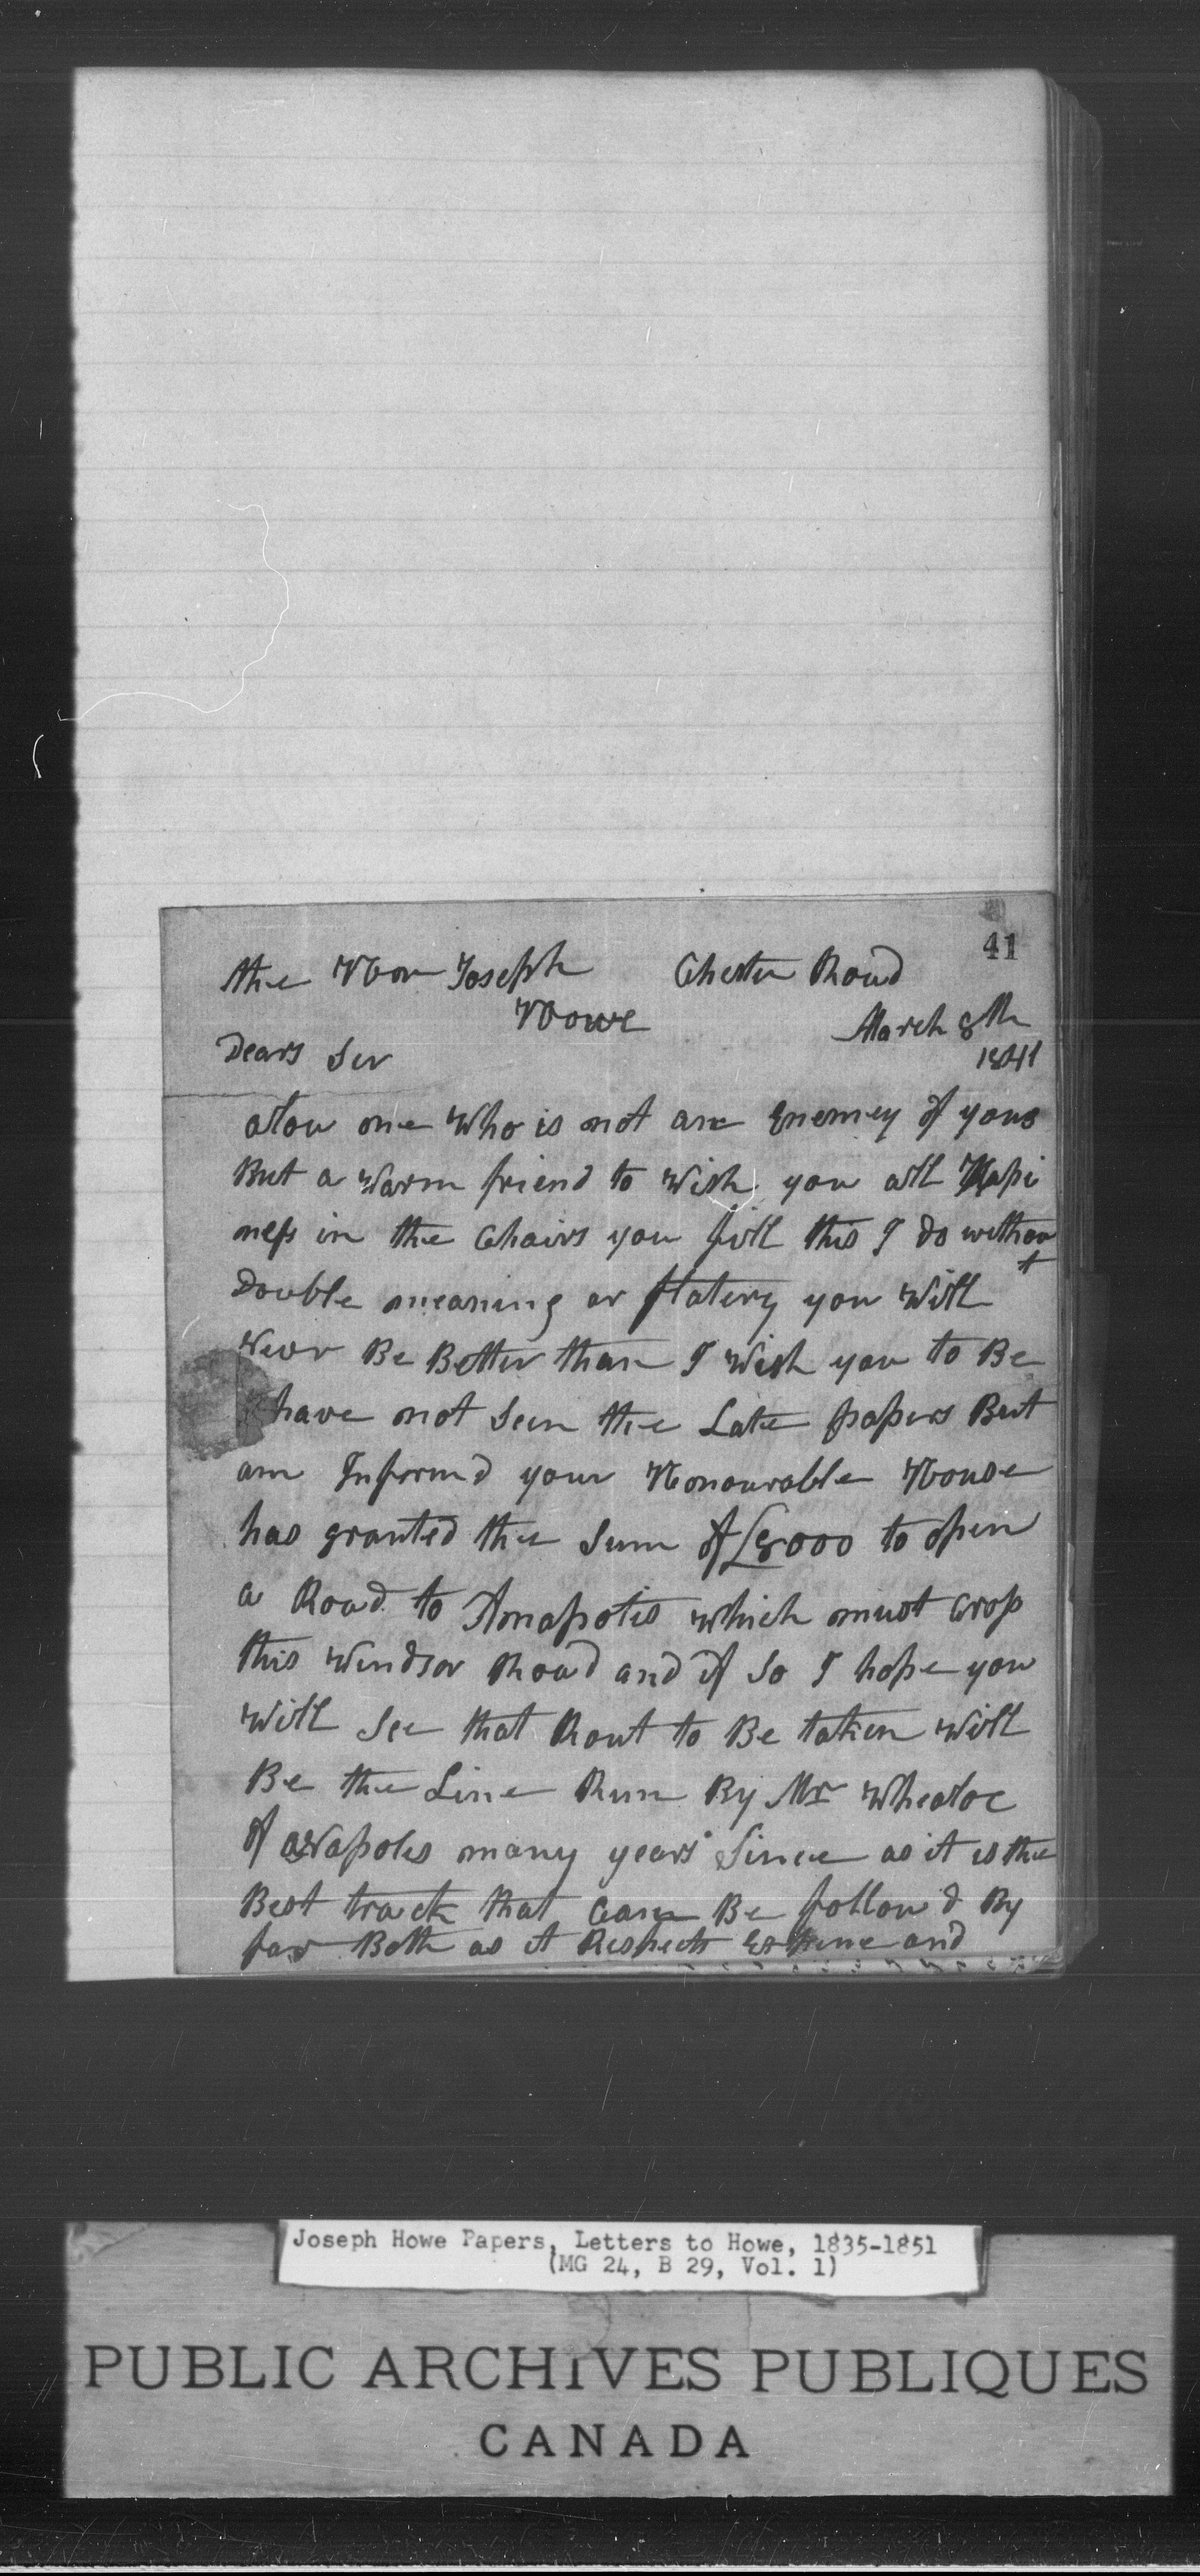 41
the Hon Joseph Chester Road
Howe March 8th
Dears Sir 1841
alow one Who is not an Enemey of yous
But a Warm friend to Wish you all Hapi
ness in the Chairs you fill this I do without
Double meaning or flatery you Will
Never Be Better than I Wish you to Be
I have not Seen the Late papers But
am Informd your Honourable House
has granted the Sum of £8000 to open
a Road to Annapolis which must Cross
this Windsor Road and if So I hope you
Will See that Rout to Be taken Will
Be the Line Run By Mr Wheatoc
of anapoles many years Since as it is the
Best track that Can Be follow'd By
far Both as it Respects and
Joseph Howe Papers, Letters to Howe, 1835-1851
(MG 24, B 29, Vol. 1)
PUBLIC ARCHIVES PUBLIQUES
CANADA